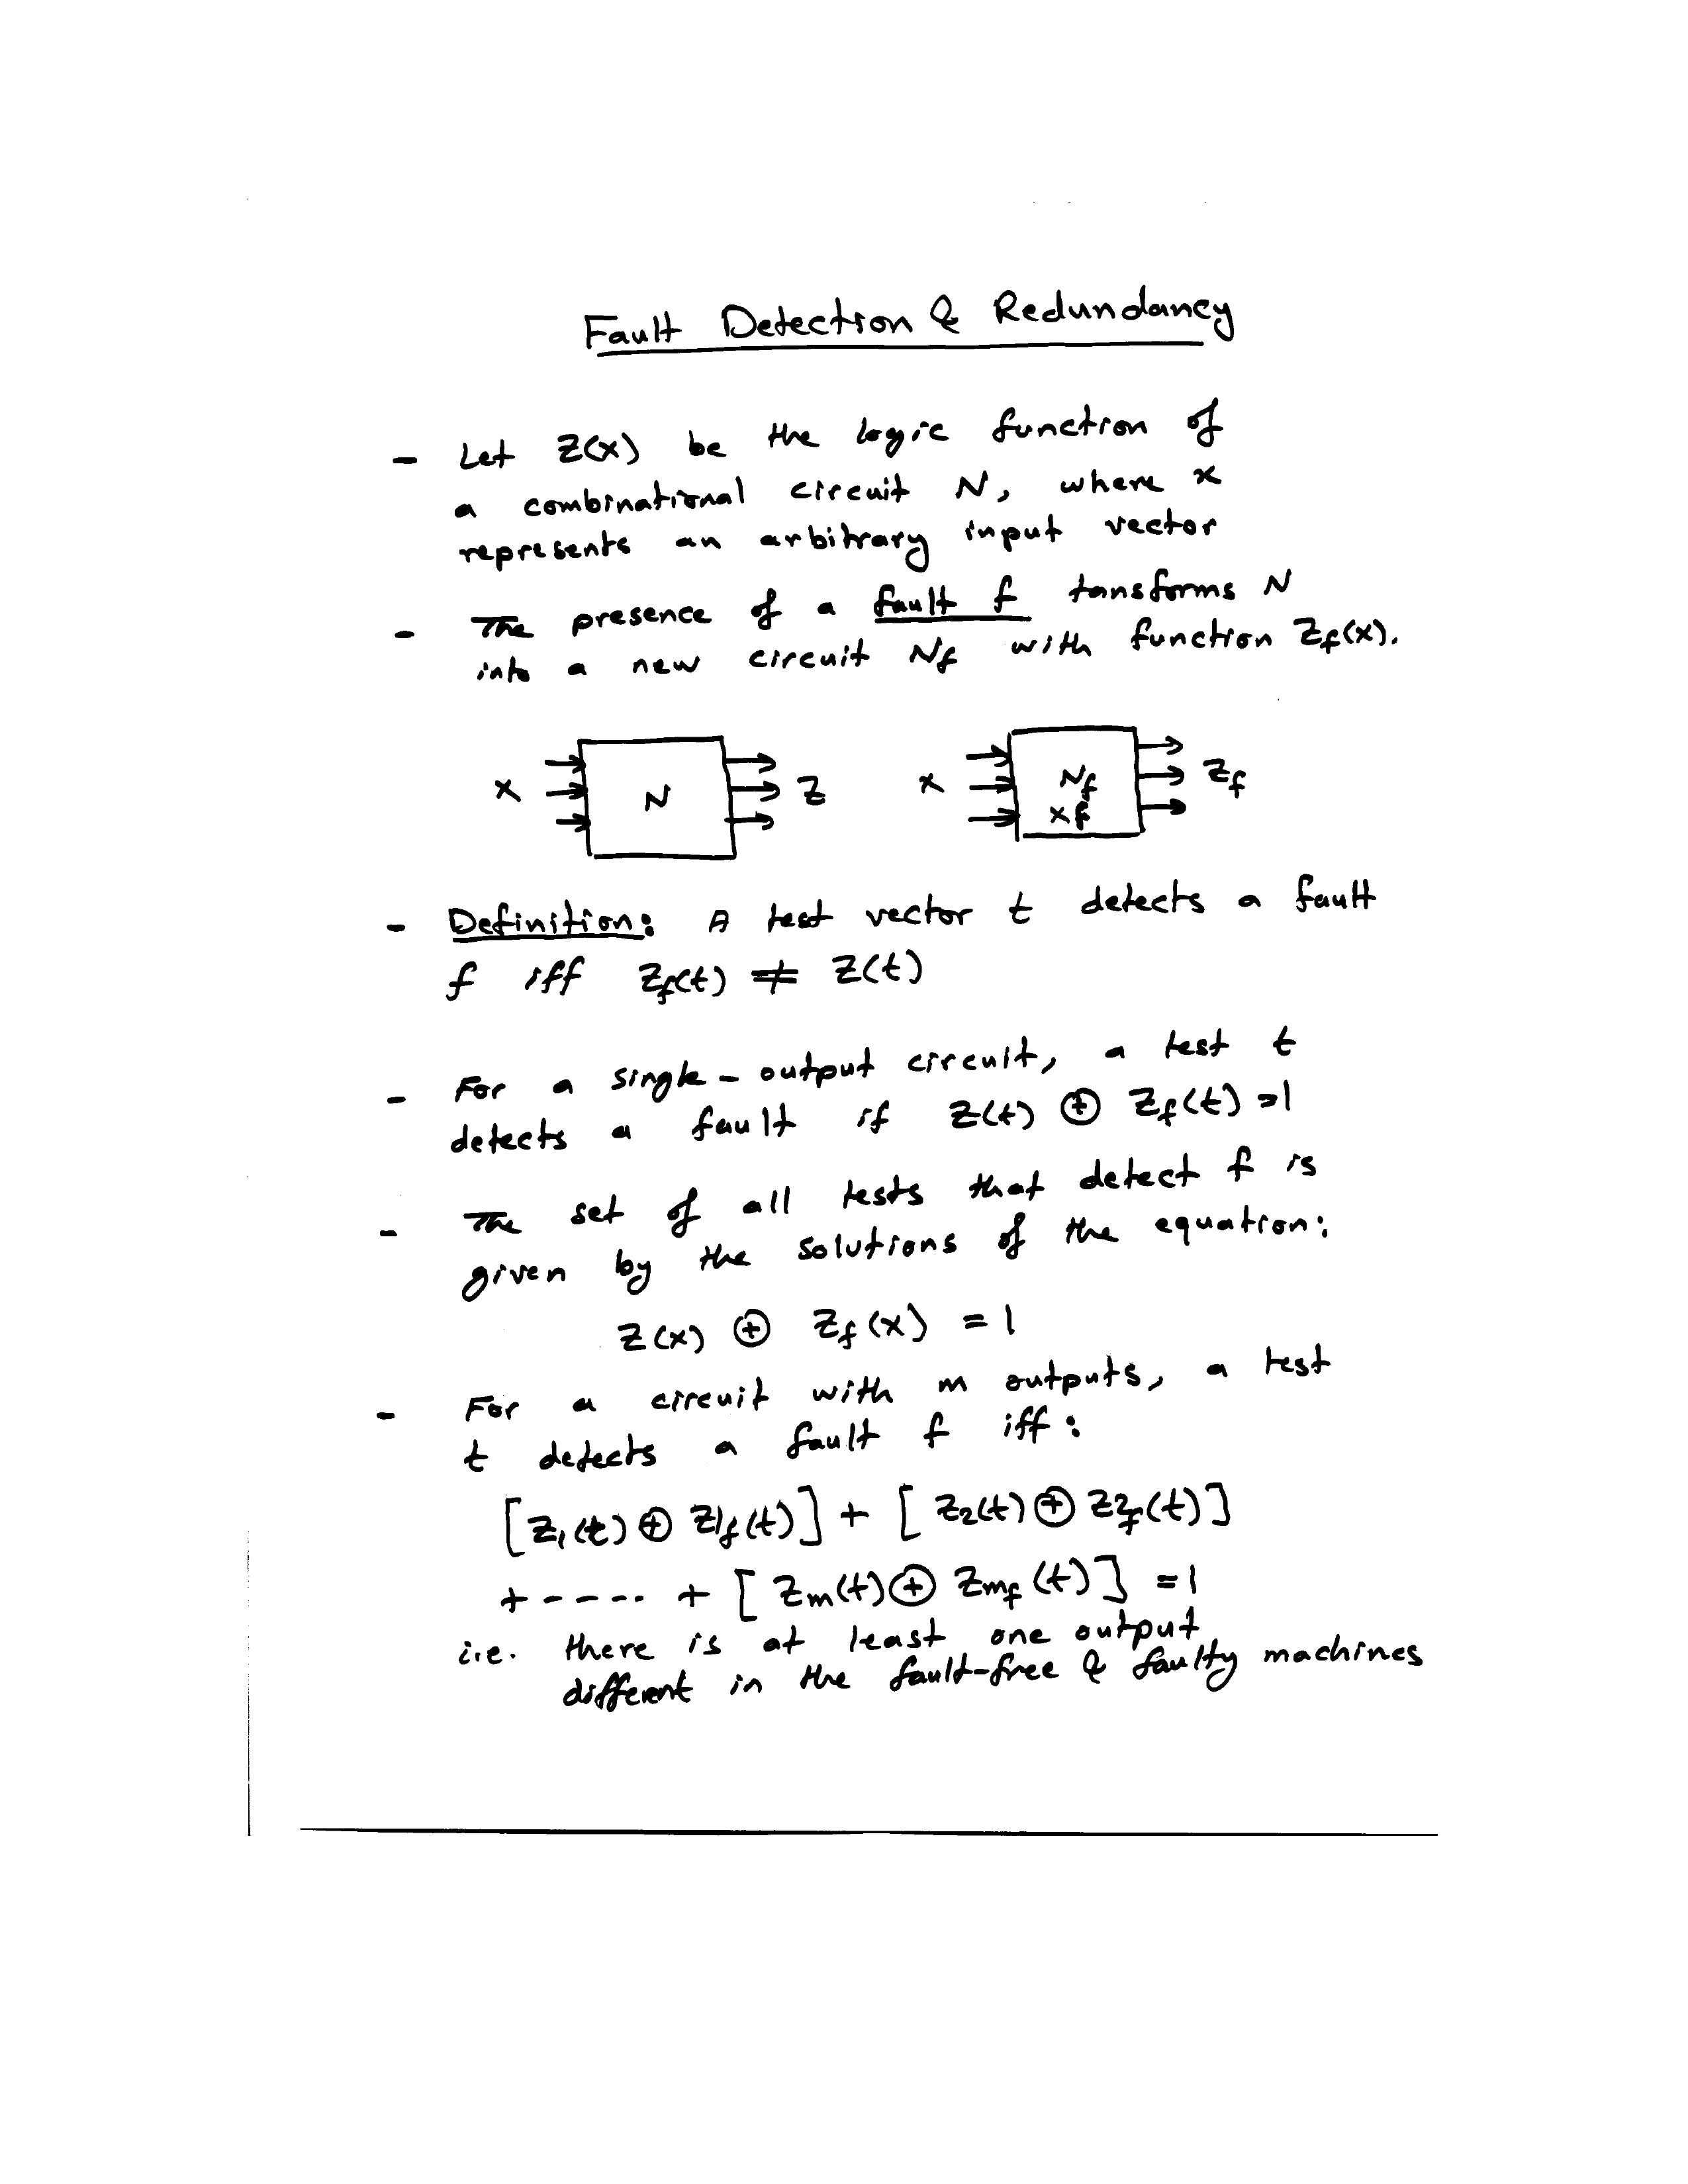 Fault Detection & Redundancy
- Let Z(x) be the logic function of
a combinational circuit N, where x
represents an arbitrary input vector
- The presence of a fault f tansforms N
into a new circuit Nf with function Zf(x).
x N Z x Nf Zf
x f
- Definition: A test vector t detects a fault
f iff Zf(t) ≠ Z(t)
- For a single-output circuit, a test t
detects a fault if Z(t) ⊕ Zf(t) = 1
- The set of all tests that detect f is
given by the solutions of the equation:
Z(x) ⊕ Zf(x) = 1
- For a circuit with m outputs, a test
t detects a fault f iff:
[Z1(t) ⊕ Z1f(t)] + [Z2(t) ⊕ Z2f(t)]
+ ----- + [Zm(t) ⊕ Zmf(t)] = 1
i.e. there is at least one output
different in the fault-free & faulty machines